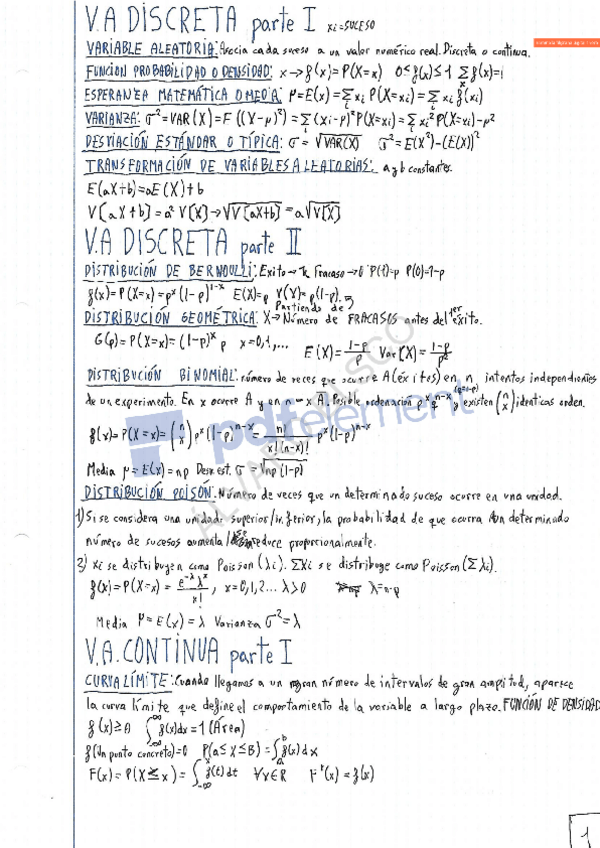 V.A DISCRETA parte I xi=SUCESO
VARIABLE ALEATORIA: Asocia cada suceso a un valor numérico real. Discreta o continua.
FUNCION PROBABILIDAD O DENSIDAD: x→f(x)=P(X=x) 0≤f(x)≤1 Σf(x)=1
ESPERANZA MATEMÁTICA O MEDIA: μ=E(x)=Σ xi P(X=xi)=Σ xi f(xi)
VARIANZA: σ²=VAR(X)=F((Y-μ)²)=Σ(xi-μ)²P(X=xi)=Σxi²P(X=xi)-μ²
DESVIACIÓN ESTÁNDAR O TÍPICA: σ=√VAR(X) σ²=E(X²)-(E(X))²
TRANSFORMACIÓN DE VARIABLES ALEATORIAS: a y b constantes.
E(aX+b)=aE(X)+b
V[aX+b]=a² V[X]→√V[aX+b]=a√V[X]
V.A DISCRETA parte II
DISTRIBUCIÓN DE BERNOULLI: Exito→1 Fracaso→0 P(1)=p P(0)=1-p
f(x)=P(X=x)=p^x(1-p)^1-x E(X)=p V(X)=p(1-p).
Partiendo de
DISTRIBUCIÓN GEOMÉTRICA: X→Número de FRACASOS antes del 1er éxito.
G(p)=P(X=x)=(1-p)^x p x=0,1,... E(X)=1-p/p Var(X)=1-p/p²
DISTRIBUCIÓN BINOMIAL: número de veces que ocurre A(éxitos) en n intentos independientes
(q=1-p)
de un experimento. En x ocurre A y en n-x A. Posible ordenación p^x q^n-x y existen (n x) identicas orden.
f(x)=P(X=x)=(n x) p^x(1-p)^n-x = n!/x!(n-x)! p^x(1-p)^n-x
Media μ=E(x)=np Desv.est. σ=√np(1-p)
DISTRIBUCIÓN POISÓN: Número de veces que un determinado suceso ocurre en una unidad.
1) Si se considera una unidade superior/inferior, la probabilidad de que ocurra un determinado
número de sucesos aumenta/se reduce proporcionalmente.
2) Xi se distribuyen como Poisson(λi). ΣXi se distribuye como Poisson(Σλi).
f(x)=P(X=x)=e^-λ λ^x/x!, x=0,1,2... λ>0 λ=n·p
Media μ=E(x)=λ Varianza σ²=λ
V.A. CONTINUA parte I
CURVA LÍMITE: Cuando llegamos a un gran número de intervalos de gran amplitud, aparece
la curva límite que define el comportamiento de la variable a largo plazo. FUNCIÓN DE DENSIDAD
f(x)≥0 ∫-∞^∞ f(x)dx=1 (Área)
f(Un punto concreto)=0 P(a≤X≤B)=∫a^b f(x)dx
F(x)=P(X≤x)=∫-∞^x f(t)dt ∀x∈R F'(x)=f(x)
1
pdfelement